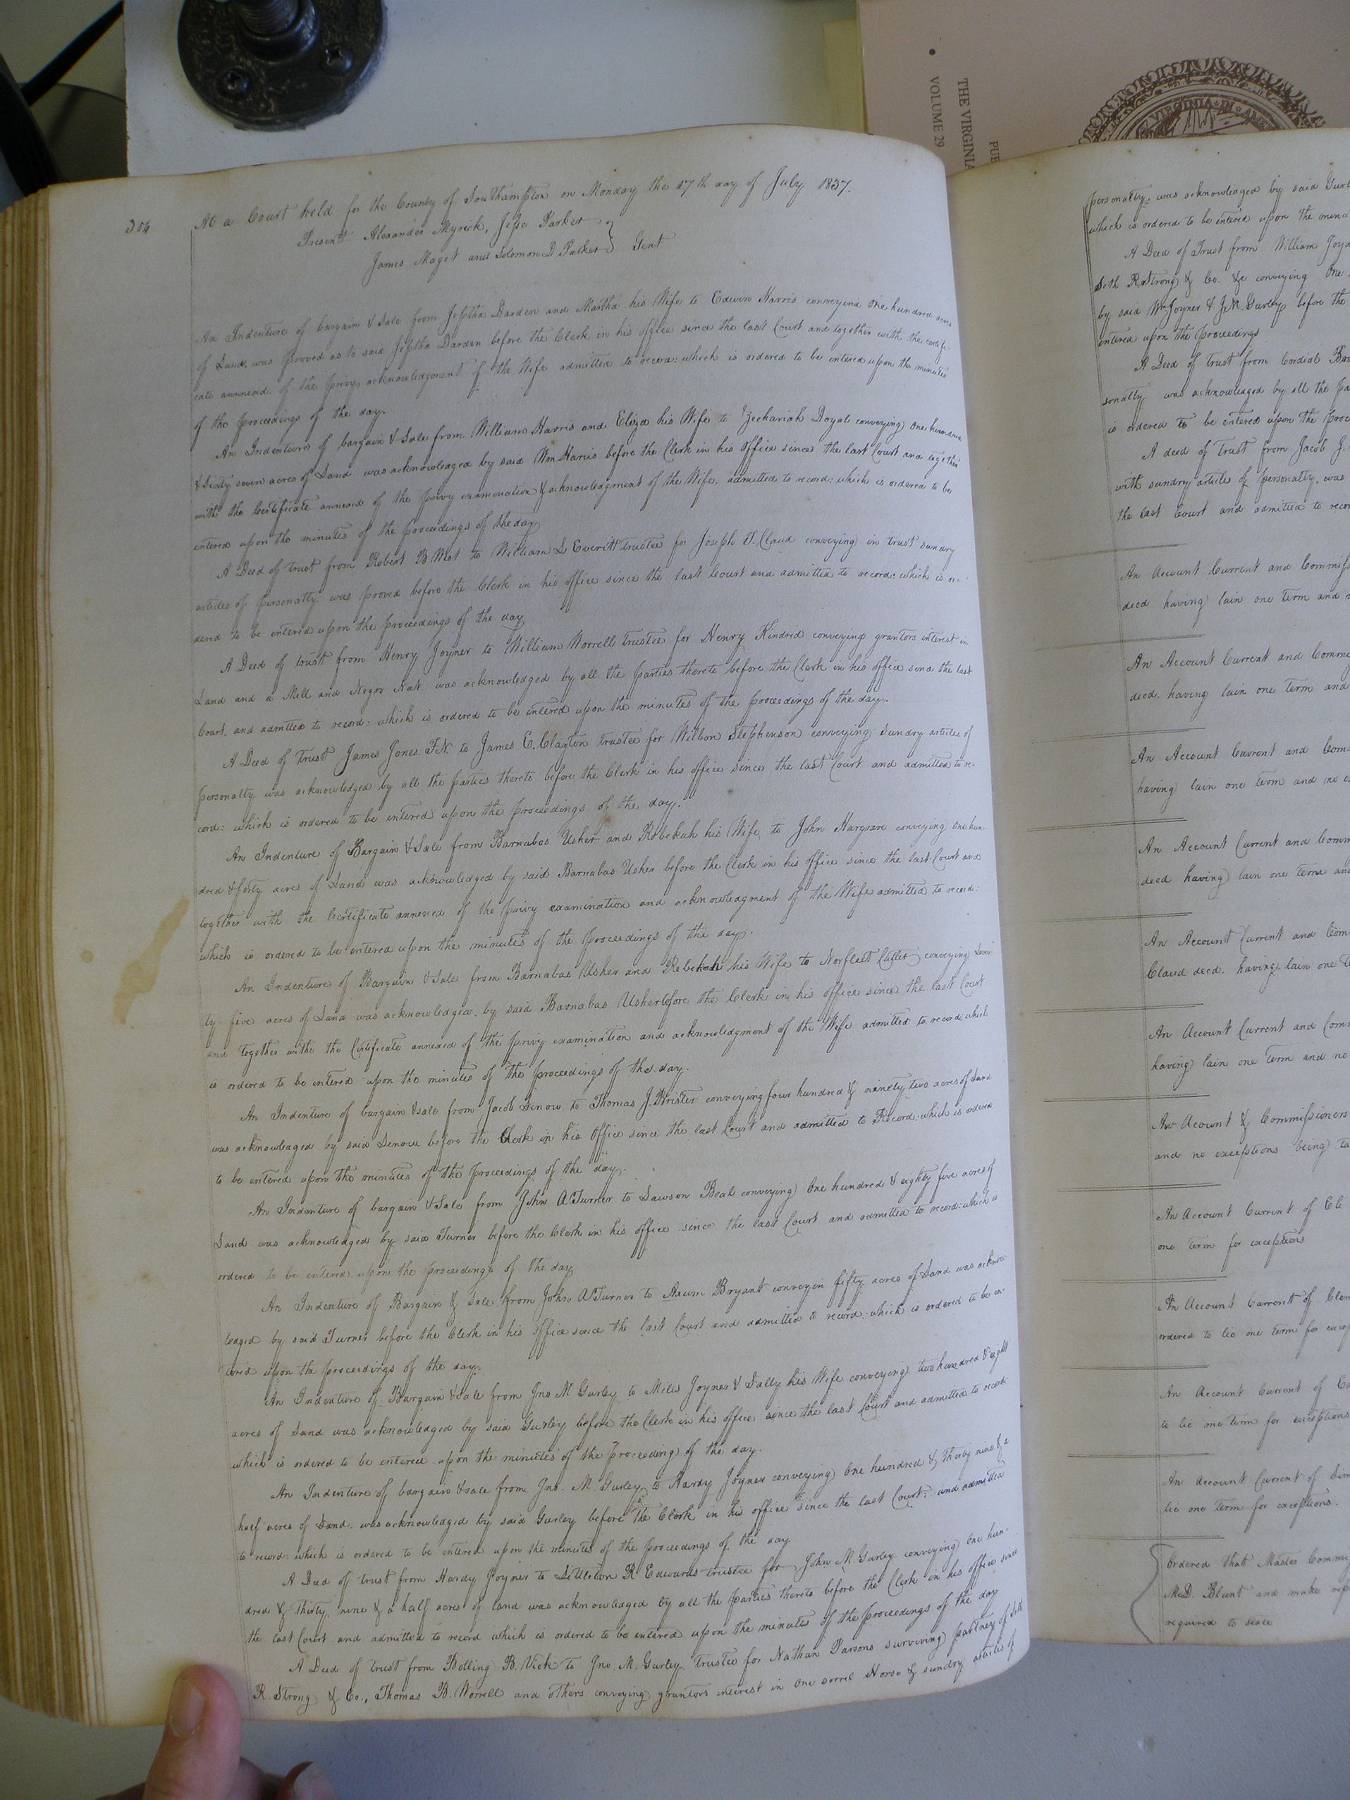 THE VIRGINIA
VOLUME 29
PUB
VIRGINIA
356
At a Court held for the County of Southampton on Monday the 17th day of July 1837.
Present Alexander Myrick, Jesse Parker
James Maget and Solomon D Parker } Gent
An Indenture of bargain & Sale from Jeptha Darden and Martha his Wife to Edwin Harris conveying One hundred acres
of Land, was proved as to said Jeptha Darden before the Clerk in his office since the last Court and together with the certifi-
cate annexed of the privy acknowledgment of the Wife admitted to record: which is ordered to be entered upon the minutes
of the proceedings of the day.
An Indenture of bargain & Sale from William Harris and Eliza his Wife to Zechariah Doyal conveying One hundred
& Sixty seven acres of Land was acknowledged by said Wm Harris before the Clerk in his office since the last Court and together
with the Certificate annexed of the privy examination & acknowledgment of the Wife, admitted to record: which is ordered to be
entered upon the minutes of the proceedings of the day
A Deed of trust from Robert B. West to William L Everitt trustee for Joseph T. Claud conveying in trust sundry
articles of personalty was proved before the Clerk in his office since the last Court and admitted to record: which is or-
dered to be entered upon the proceedings of the day.
A Deed of trust from Henry Joyner to William Worrell trustee for Henry Kindred conveying grantors interest in
Land and a Mill and Negro Nat was acknowledged by all the parties thereto before the Clerk in his office since the last
Court, and admitted to record: which is ordered to be entered upon the minutes of the proceedings of the day.
A Deed of trust James Jones F.N. to James E. Clayton trustee for Wilson Stephenson conveying sundry articles of
personalty was acknowledged by all the parties thereto before the Clerk in his office since the last Court and admitted to re-
cord: which is ordered to be entered upon the proceedings of the day.
An Indenture of Bargain & Sale from Barnabas Usher and Rebekah his Wife, to John Hargrave conveying One hun-
dred & forty acres of Land was acknowledged by said Barnabas Usher before the Clerk in his office since the last Court and
together with the Certificate annexed of the privy examination and acknowledgment of the Wife admitted to record:
which is ordered to be entered upon the minutes of the proceedings of the day.
An Indenture of Bargain & Sale from Barnabas Usher and Rebekah his Wife to Norfleet Cutler conveying Seven
ty five acres of Land was acknowledged by said Barnabas Usher before the Clerk in his office since the last Court
and together withe the Certificate annexed of the privy examination and acknowledgment of the Wife admitted to record which
is ordered to be entered upon the minutes of the proceedings of the day.
An Indenture of bargain & sale from Jacob Lenow to Thomas J. Brister conveying four hundred & ninety two acres of Land
was acknowledged by said Lenow before the Clerk in his office since the last Court and admitted to Record: which is ordered
to be entered upon the minutes of the proceedings of the day.
An Indenture of bargain & Sale from John A. Turner to Lawson Beal conveying One hundred & eighty five acres of
Land was acknowledged by said Turner before the Clerk in his office since the last Court and admitted to record: which is
ordered to be entered upon the proceedings of the day
An Indenture of Bargain & Sale, from John A Turner to Arum Bryant conveyin fifty acres of Land was acknow-
ledged by said Turner before the Clerk in his office since the last Court and admitted to record: which is ordered to be en-
tered upon the proceedings of the day.
An Indenture of Bargain & Sale from Jno M Gurley to Miles Joyner & Sally his Wife conveying two hundred & eight
acres of Land was acknowledged by said Gurley before the Clerk in his office since the last Court and admitted to record
which is ordered to be entered upon the minutes of the Proceedings of the day.
An Indenture of bargain & sale from Jno. M. Gurley to Hardy Joyner conveying One hundred & thirty nine & a
half acres of Land was acknowledged by said Gurley before the Clerk in his office since the last Court: and admitted
to record: which is ordered to be entered upon the minutes of the proceedings of the day
A Deed of trust from Hardy Joyner to Littleton R Edwards trustee for John M Gurley conveying One hun-
dred & thirty nine & a half acres of land was acknowledged by all the parties thereto before the Clerk in his office since
the last Court and admitted to record which is ordered to be entered upon the minutes of the proceedings of the day
A Deed of trust from Bolling B. Vick to Jno. M. Gurley trustee for Nathan Parsons surviving partner of Seth
R. Strong & Co., Thomas B. Worrell and others conveying grantors interest in One sorrel Horse & sundry articles of
personalty was acknowledged by said Gurl
which is ordered to be entered upon the minu
A Deed of Trust from William Joyn
Seth R. Strong & Co. &c conveying One
by said Wm Joyner & J. M. Gurley before the
entered upon the proceedings
A Deed of trust from Cordial
sonalty was acknowledged by all the pa
is ordered to be entered upon the proc
A deed of trust from Jacob J.
with sundry article of personalty, was
the last Court and admitted to recor
An Account Current and Commiss
decd having lain one term and
An Account Current and Comm
decd. having lain one term and
An Account Current and Com
having lain one term and no e
An Account Current and Comm
decd having lain one term an
An Account Current and Com
Claud decd. having lain one
An Account Current and Com
having lain one term and no
An Account & Commissioners
and no exceptions being ta
An Account Current of
one term for exceptions
An Account Current of
ordered to lie one term for excep
An Account Current of
to lie one term for exceptions
An Account Current of
lie one term for exceptions.
Ordered that Master Commi
M.D. Blunt and make rep
required to state